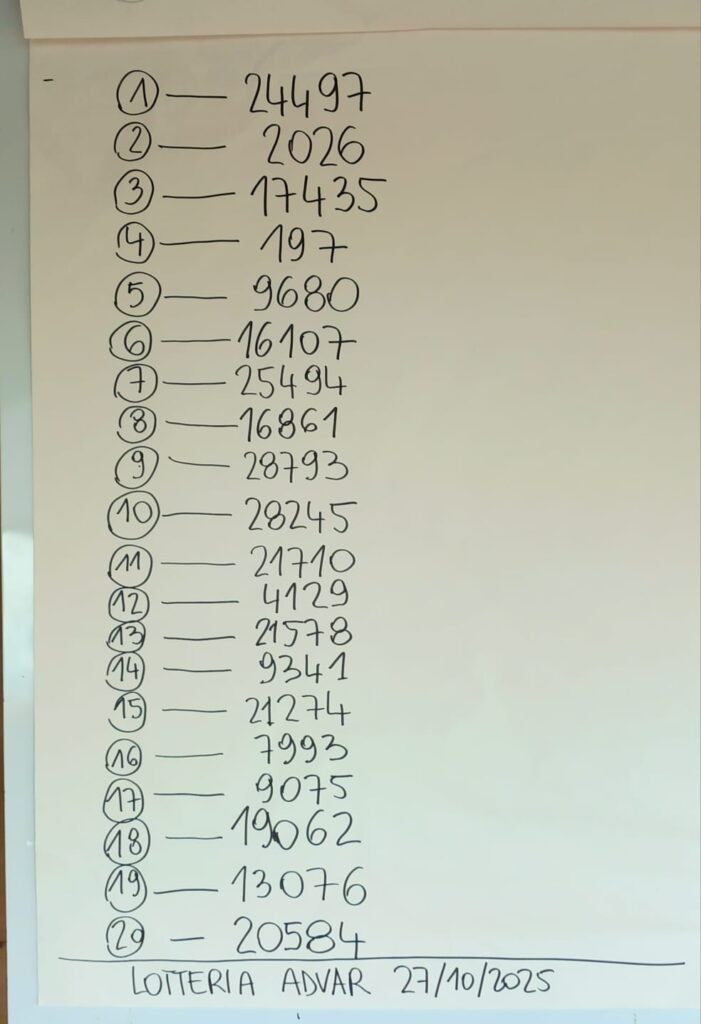 1 — 24497
2 — 2026
3 — 17435
4 — 197
5 — 9680
6 — 16107
7 — 25494
8 — 16861
9 — 28793
10 — 28245
11 — 21710
12 — 4129
13 — 21578
14 — 9341
15 — 21274
16 — 7993
17 — 9075
18 — 19062
19 — 13076
20 — 20584
LOTTERIA ADVAR 27/10/2025